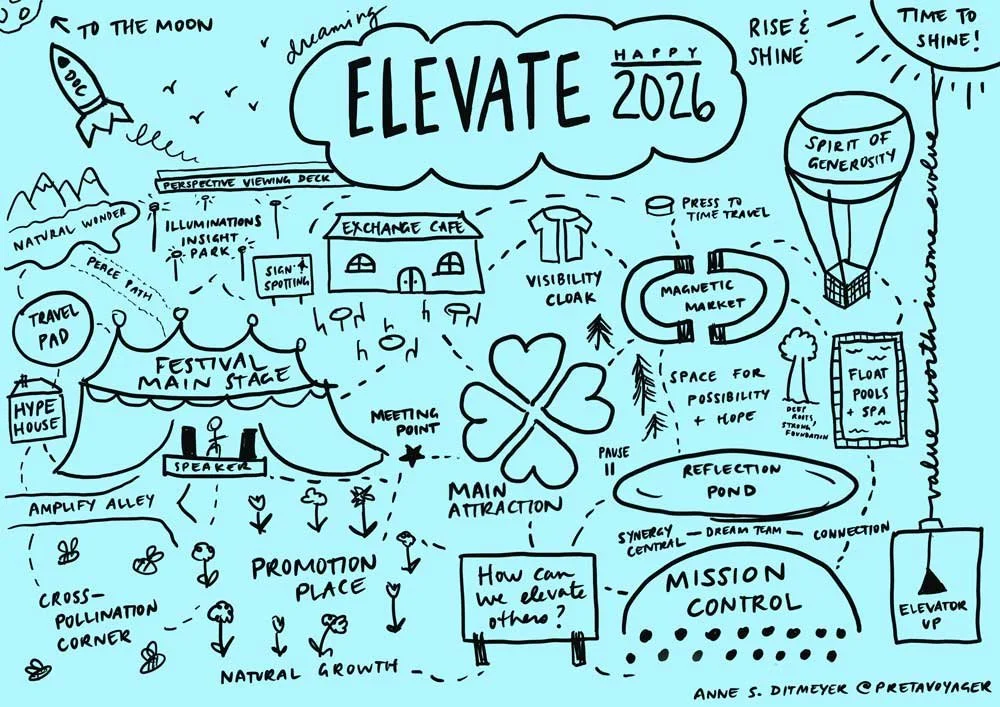 TO THE MOON
DOC
dreaming
ELEVATE
HAPPY
2026
RISE &
SHINE
TIME TO
SHINE!
SPIRIT OF
GENEROSITY
PERSPECTIVE VIEWING DECK
NATURAL WONDER
ILLUMINATIONS
INSIGHT
PARK
PEACE PATH
SIGN &
SPOTTING
EXCHANGE CAFE
VISIBILITY
CLOAK
PRESS TO
TIME TRAVEL
MAGNETIC
MARKET
TRAVEL
PAD
FESTIVAL
MAIN STAGE
HYPE
HOUSE
SPEAKER
MEETING
POINT
MAIN
ATTRACTION
SPACE FOR
POSSIBILITY
+ HOPE
DEEP
ROOTS,
STRONG
FOUNDATION
FLOAT
POOLS
+ SPA
PAUSE
REFLECTION
POND
value worth income evolve
AMPLIFY ALLEY
CROSS-
POLLINATION
CORNER
PROMOTION
PLACE
NATURAL GROWTH
How can
we elevate
others?
SYNERGY
CENTRAL — DREAM TEAM — CONNECTION
MISSION
CONTROL
ELEVATOR
UP
ANNE S. DITMEYER @PRETAVOYAGER